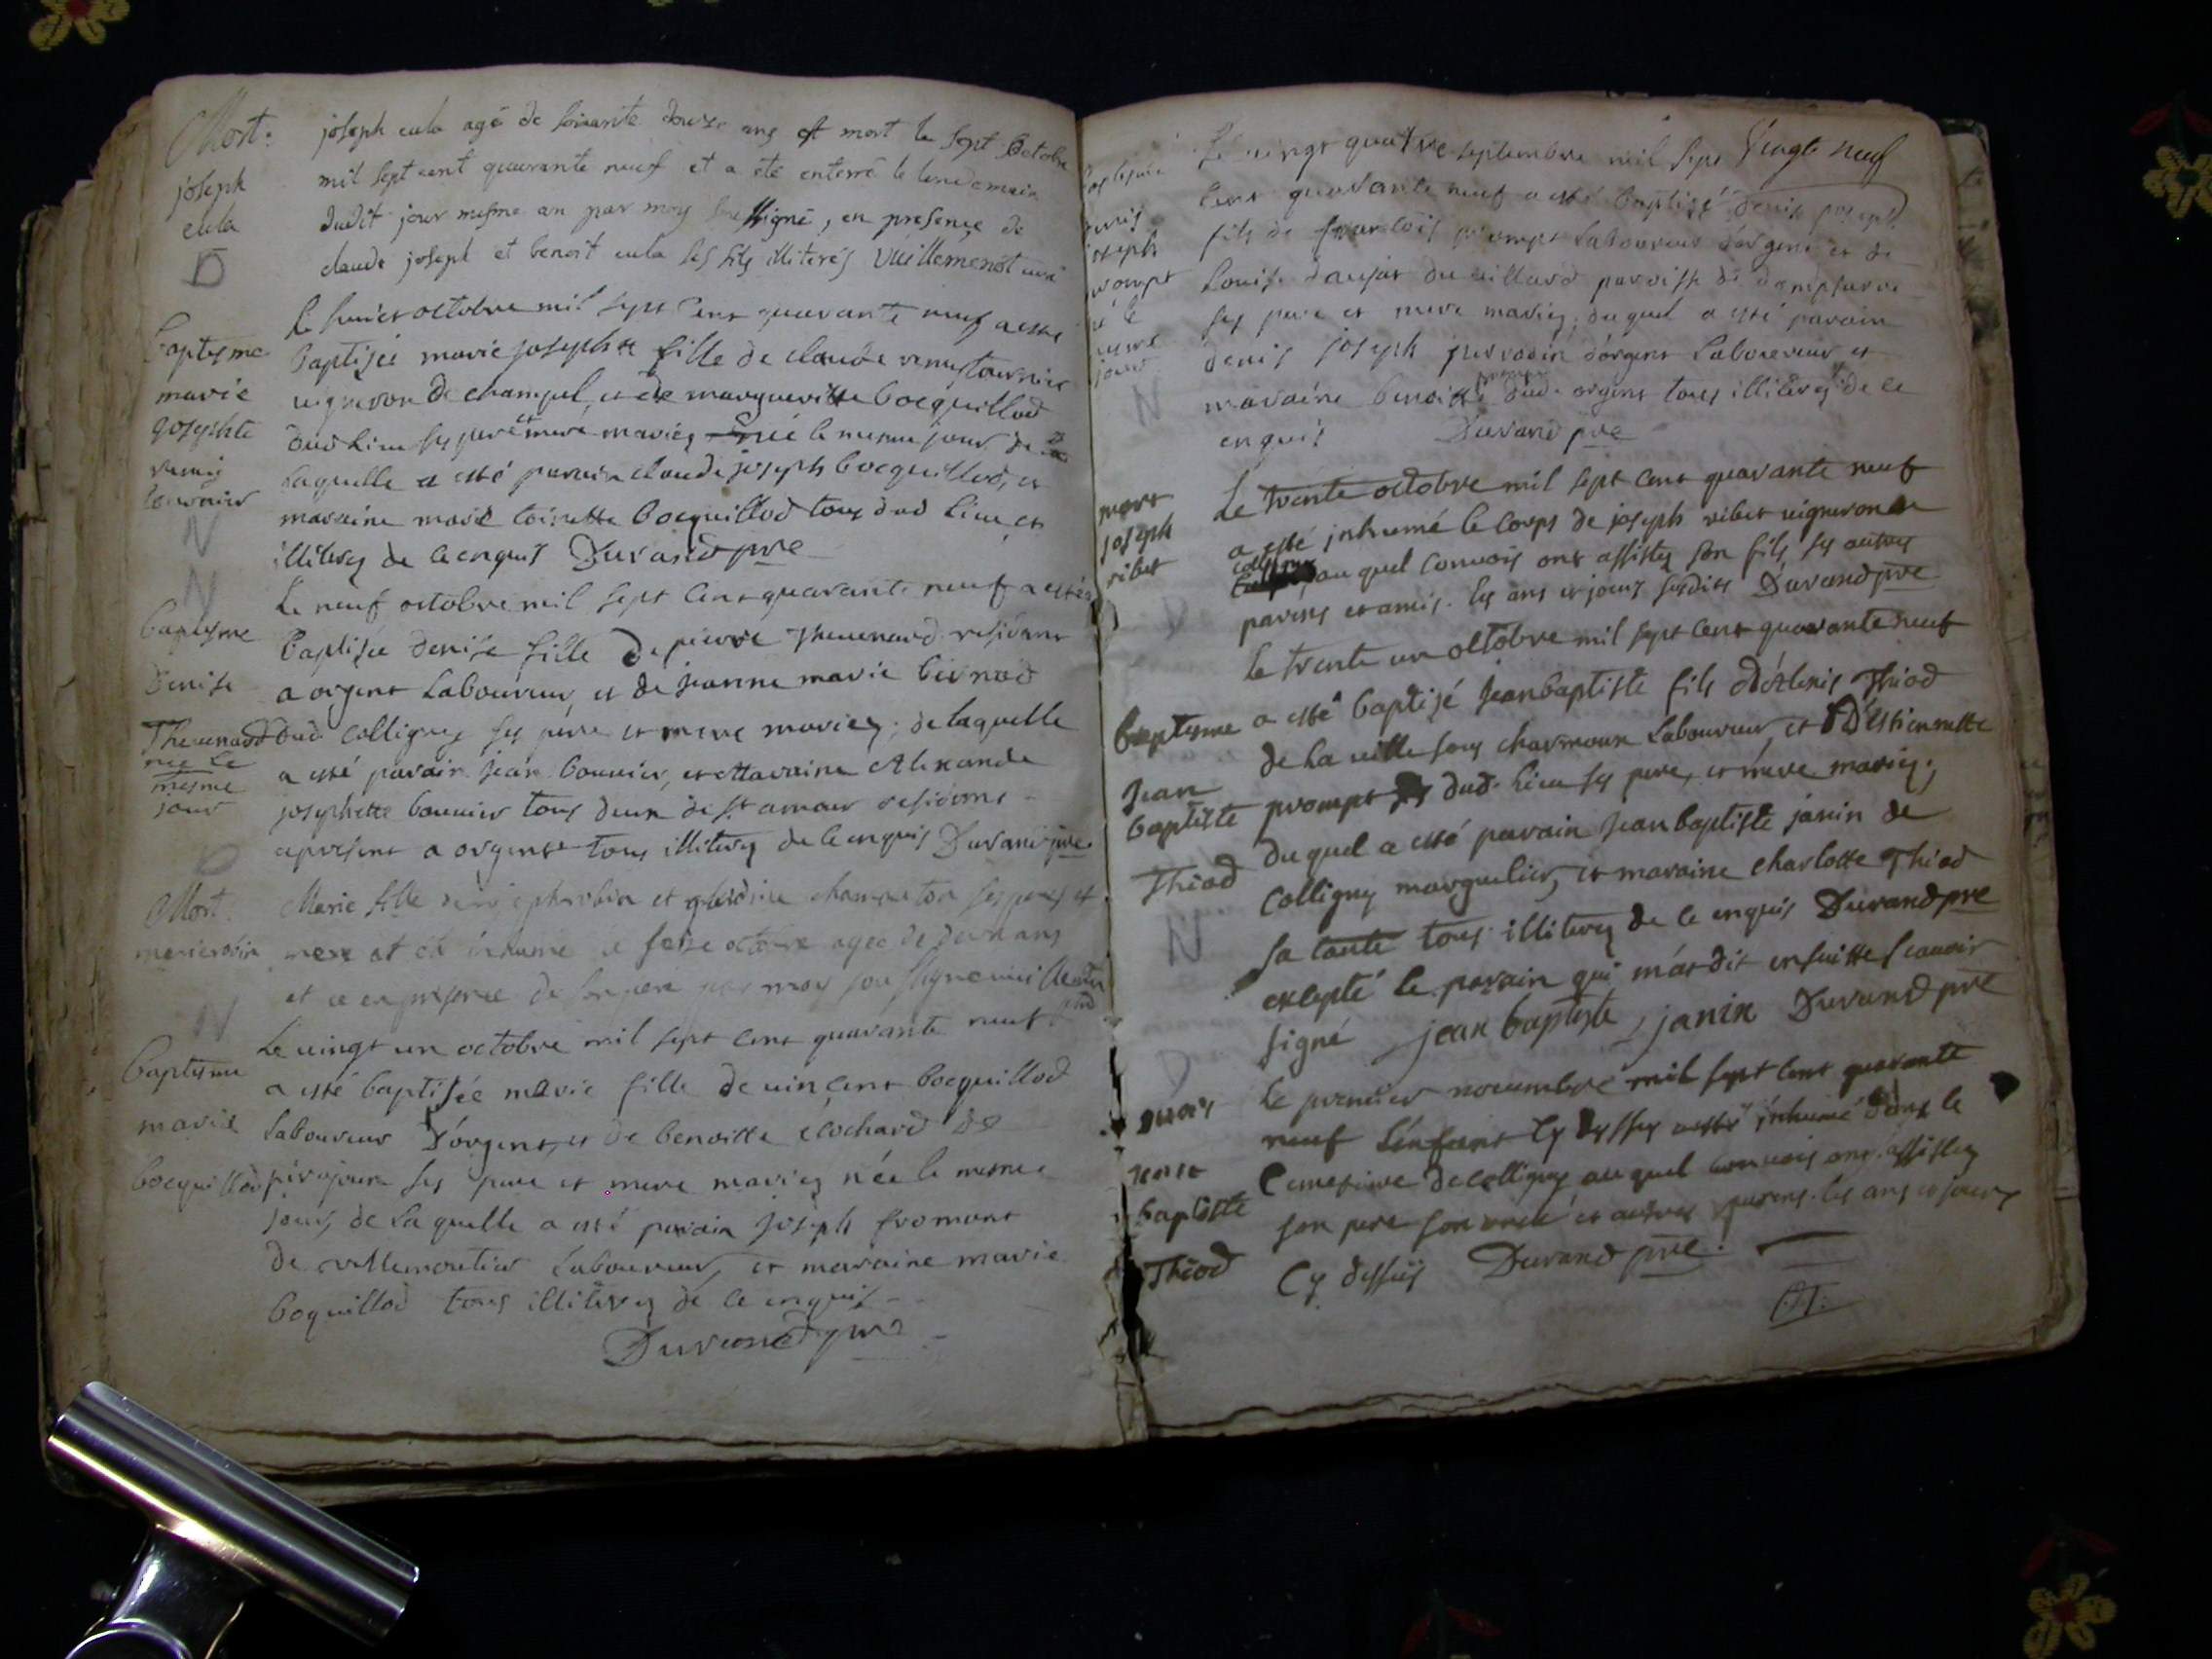 Mort.
joseph
cula
D
joseph cula agé de soixante douze ans est mort le sept octobre
mil sept cent quarante neuf et a été enterré le lendemain
dudit jour mesme an par moy soussigné, en presence de
claude joseph et benoit cula ses fils illiterés Vuillemenot curé
Baptesme
marie
josephte
remis
tournier
N
le octobre mil sept cent quarante neuf a esté
baptisée marie josephte fille de claude remis tournier
vigneron de champel, et de margueritte bocquillod
dud lieu ses pere et mere mariez née le mesme jour de
laquelle a esté parain claude joseph bocquillod, et
maraine marie toinette bocquillod tous dud lieu et
illiterez de ce enquis Durand pre
N
baptesme
denise
Thevenard
née le
mesme
jour
Le neuf octobre mil sept cent quarante neuf a estée
baptisée denise fille de pierre Thevenard residant
a orgent laboureur, et de jeanne marie bernod
dud colligny ses pere et mere mariez; de laquelle
a esté parain jean bouvier, et Maraine Alexande
josephette bouvier tous deux de st amour residans
apresent a orgent tous illiterez de ce enquis Durand pre
D
Mort.
marie robin
Marie fille robin et champeton ses pere et
mere at été inhumé le seize octobre agée de deux ans
et ce en presence de son pere par moy sou signé
N
baptesme
marie
bocquillod
Le vingt un octobre mil sept cent quarante neuf
a esté baptisée marie fille de vincent bocquillod
laboureur d'orgent, et de benoitte clochard de
pirajoux ses pere et mere mariez née le mesme
jour, de laquelle a esté parain joseph fromont
de villemoutier laboureur, et maraine marie
boquillod tous illiterez de ce enquis
Durand pre
vingte neuf
joseph
prompt
le
jour
N
Le vingt quatre septembre mil sept
cent quarante neuf a esté baptisé denis joseph
fils de francois prompt laboureur d'orgent et de
Louise daujat du villard paroisse de
ses pere et mere mariez; duquel a esté parain
denis joseph perradin d'orgent laboureur et
maraine benoitte prompt dud. orgent tous illiterez de ce
enquis Durand pre
mort
joseph
ribet
D
Le trente octobre mil sept cent quarante neuf
a esté inhumé le corps de joseph ribet vigneron de
colligny, au quel convois ont assistez son fils, ses autres
parens et amis. les ans et jours susdits Durand pre
baptesme
Jean
baptiste
Thiod
N
Le trente un octobre mil sept cent quarante neuf
a esté baptisé Jean baptiste fils d'Alexis Thiod
de la ville sous charmoux laboureur, et d'Estiennette
prompt dud. lieu ses pere, et mere mariez;
duquel a esté parain Jean baptiste janin de
colligny marguelier, et maraine charlotte Thiod
sa tante tous illiterez de ce enquis Durand pre
excepté le parain qui m'at dit ensuitte scavoir
signé jean baptiste janin Durand pre
D
mors
Jean
baptiste
Thiod
Le premier novembre mil sept cent quarante
neuf l'enfant cy dessus a esté inhumé dans le
Cemetiere de colligny au quel convois ont assistez
son pere son oncle et autres parens. les ans et jours
Cy dessus Durand pre.